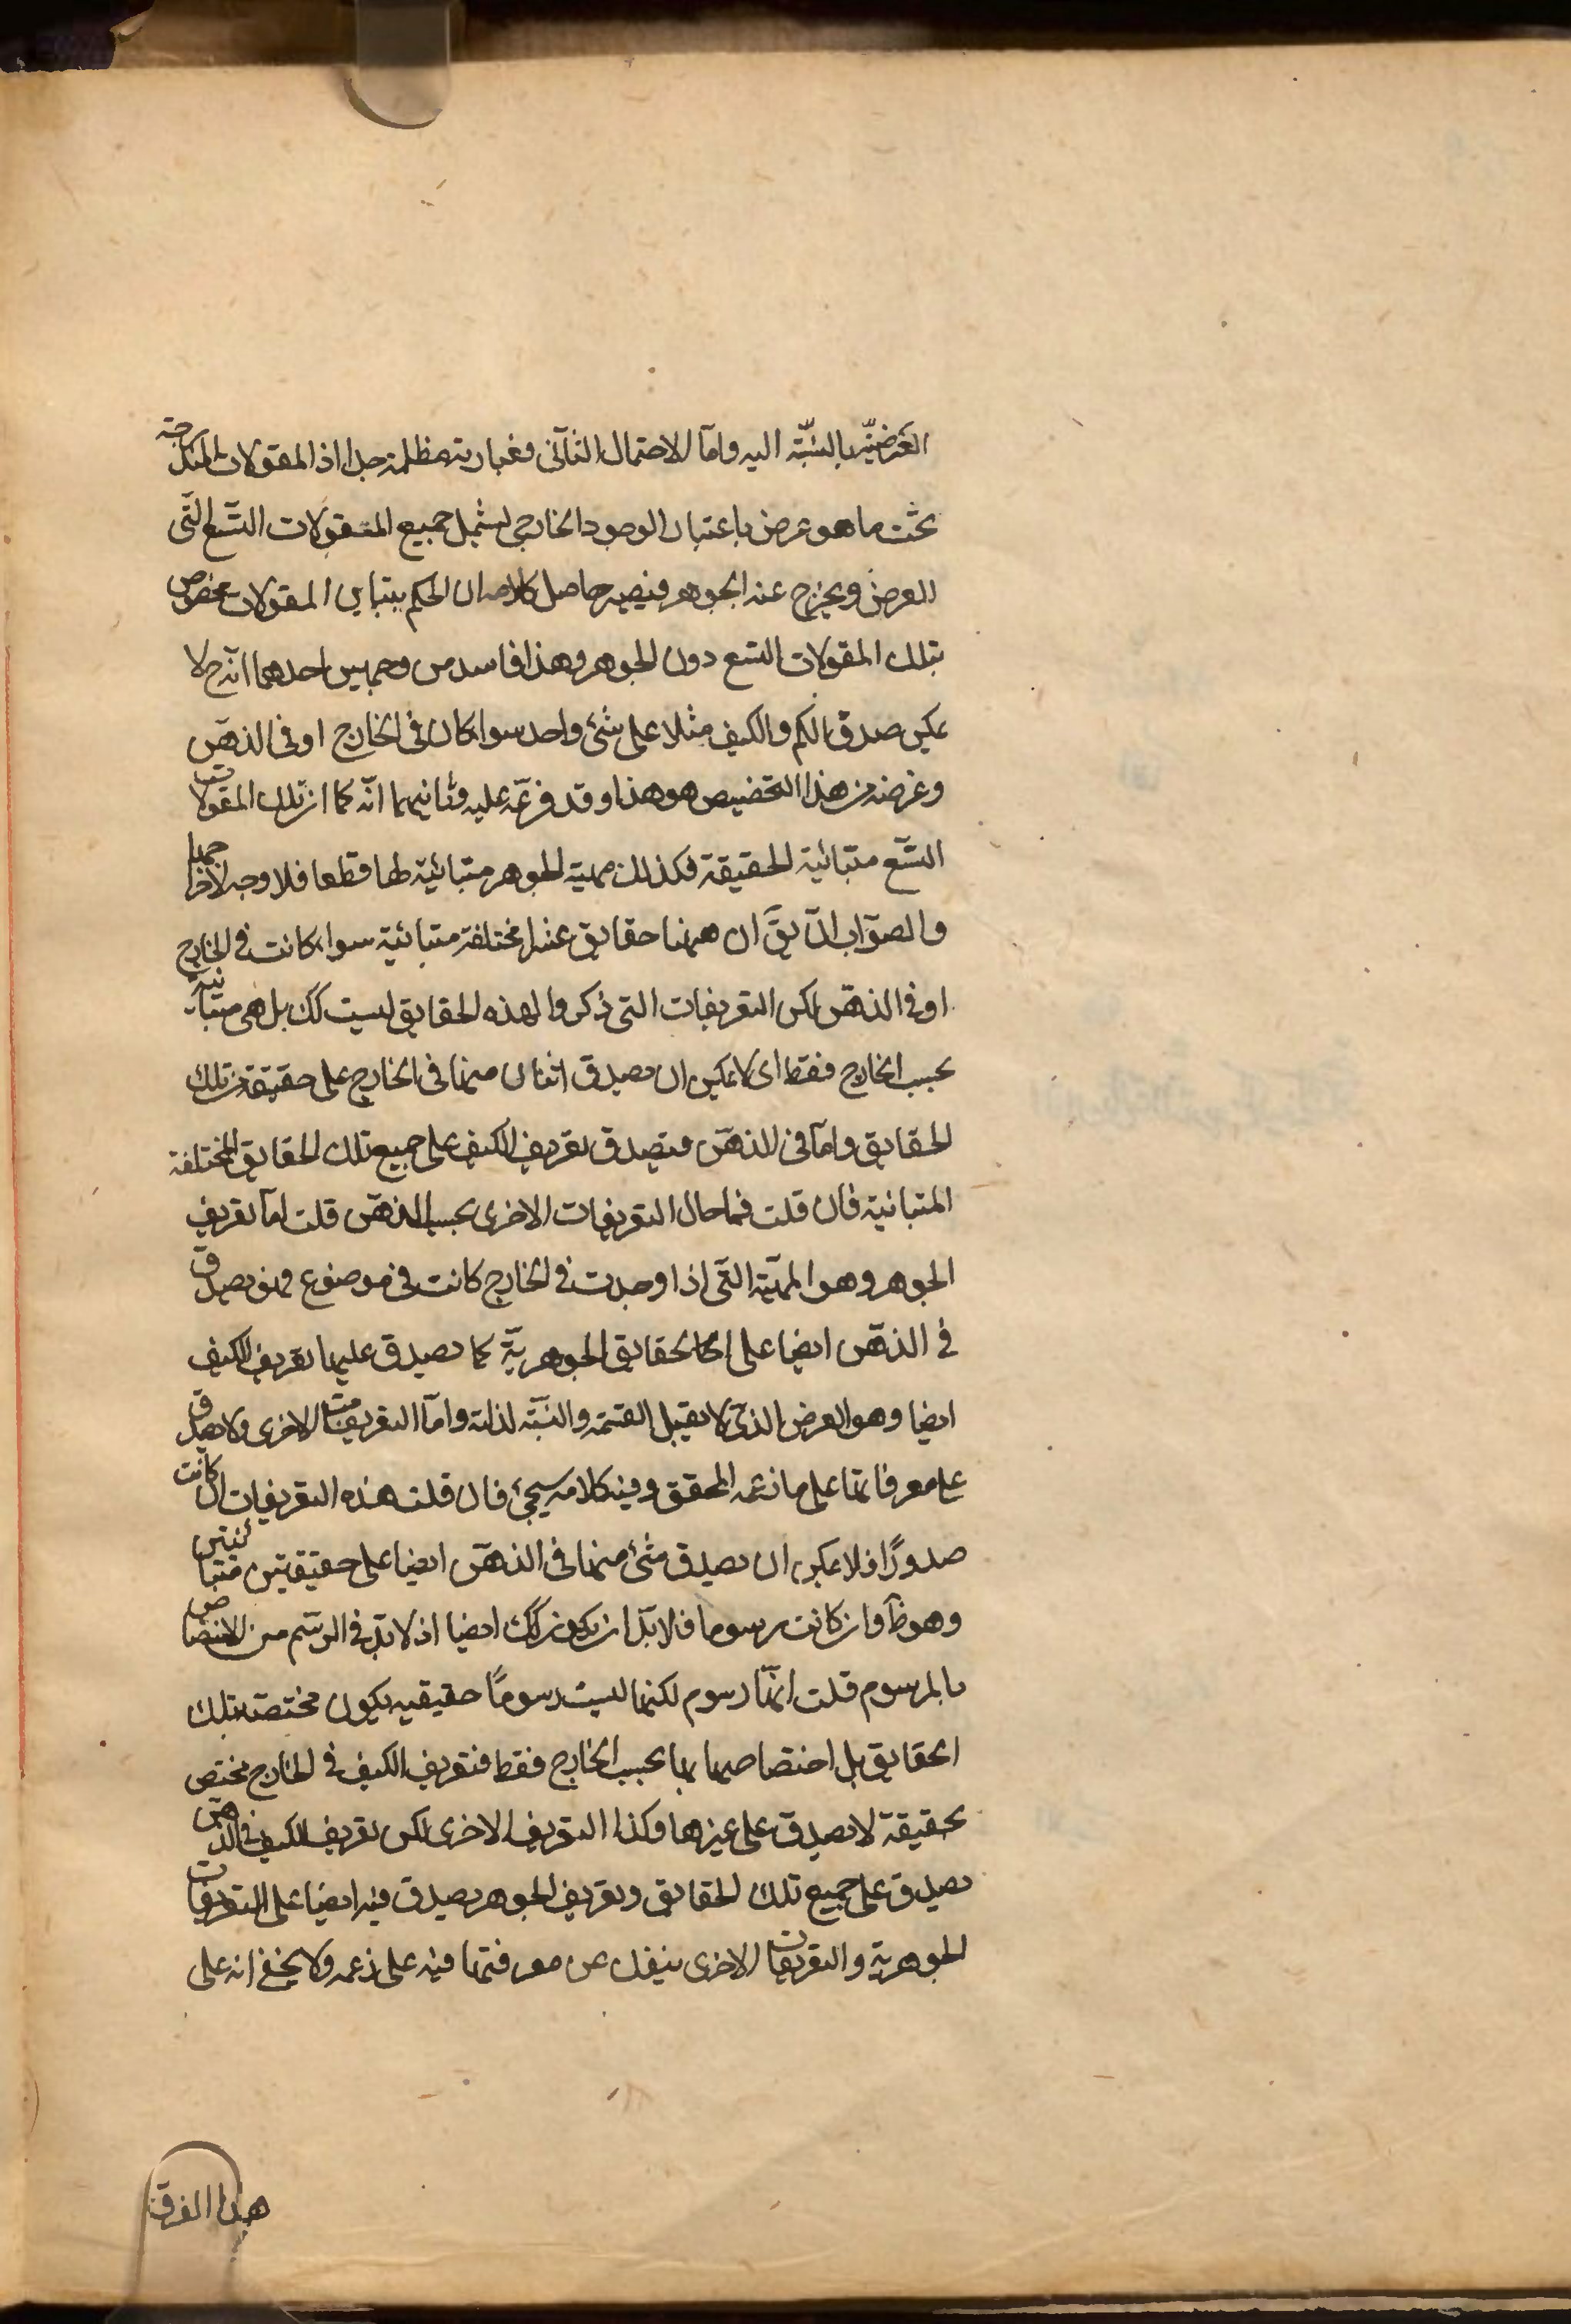 العرضيّة بالنسبّة اليه وامّا الاحتمال الثاّنى فعبارته مظلمة جدا اذ المقولات المندرجة
تحت ما هو عرض باعتبار الوجود الخارجى ليشمل جميع المقولات التسّع التّى
للعرض ويخرج عنه الجوهر فيصير حاصل كلامه ان الحكم بتباين المقولات مخصوص
بتلك المقولات التسع دون الجوهر وهذا فاسد من وجهين احدهما انّه ح لا
يمكن صدق الكم والكيف مثلا على شئ واحد سواء كان فى الخارج او فى الذهّن
وغرضه من هذا التخصيص هو هذا وقد فرعّه عليه وثانيهما انّه كما ان تلك المقولات
التسّع متبائنة الحقيقة فكذلك مهية الجوهر متبائنة لها قطعا فلا وجه لاخراجها
والصوّاب ان يقّ ان ههنا حقايق عشرا مختلفة متبائنة سواء كانت فى الخارج
او فى الذهّن لكن التعريفات التى ذكروا لهذه الحقايق ليست كك بل هى متبائنة
بحسب الخارج فقط اى لا يمكن ان يصدق اثنان منها فى الخارج على حقيقة من تلك
الحقايق وامّا فى الذهّن فيصدق تعريف الكيف على جميع تلك الحقايق المختلفة
المتبائنة فان قلت فما حال التعريفات الاخرى بحسب الذهّن قلت امّا تعريف
الجوهر وهو المهيّة التّى اذا وجدت فى الخارج كانت فى موضوع فهو يصدق
فى الذهّن ايضا على الحقايق الجوهريّة كما يصدق عليها تعريف الكيف
ايضا وهو العرض الذّى لا يقبل القسمة والنسبّة لذاته وامّا التعريفات الاخرى ولا يصدق
على معرفاتها على ما زعمه المحقق وفيه كلام سيجئ فان قلت هذه التعريفات ان كانت
حدودًا فلا يمكن ان يصدق شئ منها فى الذهّن ايضا على حقيقتين متبائنتين
وهو ظّ وان كانت رسوما فلا بدّ ان يكون كك ايضا اذ لا بدّ فى الرسّم من الاختصاص
بالمرسوم قلت انهّا رسوم لكنها ليست رسومًا حقيقيه يكون مختصة بتلك
الحقايق بل اختصاصها بها بحسب الخارج فقط فتعريف الكيف فى الخارج مختص
بحقيقة لا يصدق على غيرها وكذا التعريف الاخرى لكن تعريف الكيف فى الذهّن
يصدق على جميع تلك الحقايق وتعريف الجوهر يصدق فيه ايضا على التعريفات
الجوهرية والتعريفات الاخرى ينفك عن معرفتها فيه على زعمه ولا يخفى انه على
هذا الفرق